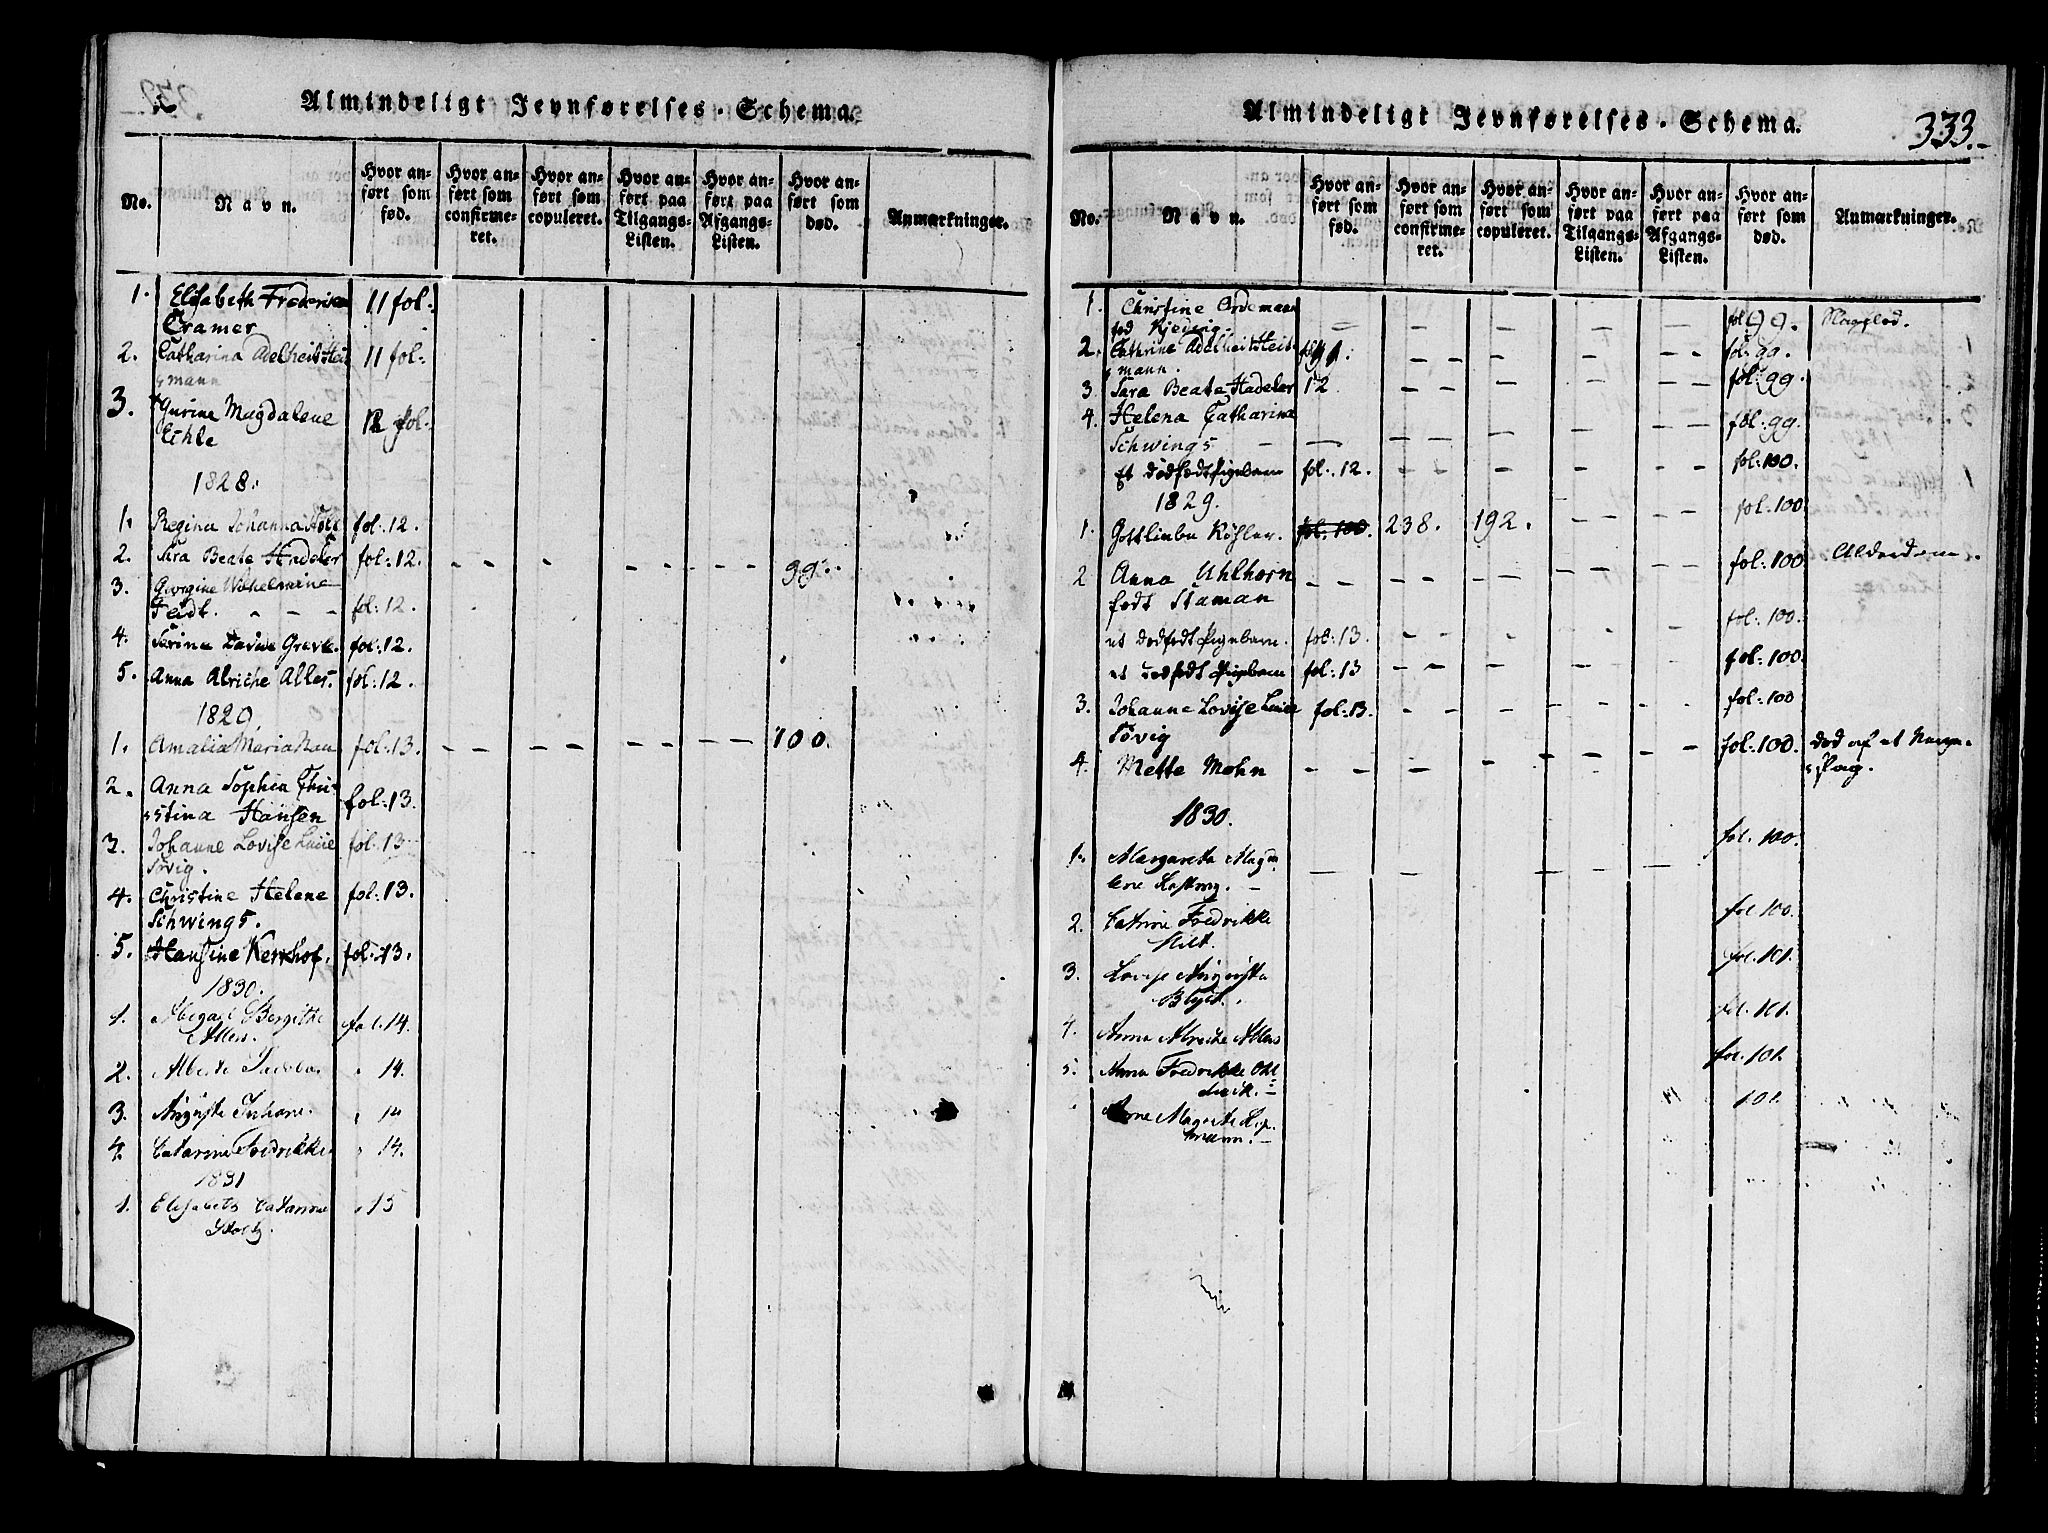 Almindeligt Jevnførelses-Schema.
No. Navn. Hvor anført som fød. Hvor anført som confirmeret. Hvor anført som copuleret. Hvor anført paa Tilgangs-Listen. Hvor anført paa Afgangs-Listen. Hvor anført som død. Anmærkninger.
1. Elisabeth Frederica 11 fol.
Cramer
2. Catharina Adelheit Heit 11 fol.
mann
3. Gurine Magdalene 12 fol.
Eihle
1828.
1. Regina Johanna fol: 12.
2. Sara Beate Hadeler fol: 12. - - - - - 99.
3. Georgine Wilhelmine
Feidt. - - - fol: 12.
4. Serina Lavise Greve. fol: 12.
5. Anna Alriche Allers. fol: 12.
1820.
1. Amalia Maria Rau fol: 13. - - - - - 100.
2. Anna Sophia Chri-
stina Hansen fol: 13.
3. Johanne Lovise Lucie fol: 13
Tovig.
4. Christine Helene fol: 13.
Schwings.
5. Hansine Kerkhof. fol: 13.
1830.
1. Abigael Bergithe fol. 14.
Allers.
2. Alberte Jacoba " 14.
3. Auguste Juliane. " 14
4. Catarine Fredrikke " 14.
1831
1. Elisabeth Catarine " 15
Stoltz.
Almindeligt Jevnførelses-Schema.
333.
No. Navn. Hvor anført som fød. Hvor anført som confirmeret. Hvor anført som copuleret. Hvor anført paa Tilgangs-Listen. Hvor anført paa Afgangs-Listen. Hvor anført som død. Anmærkninger.
1. Christine Ordemann
fød Kjeding. - - - - - fol 99.
2. Cathrine Adelheit Heit- fol 11. - - - - fol: 99.
mann.
3. Sara Beate Hadeler 12 - - - - fol: 99.
4. Helena Catharina
Schwings - - - - - - fol: 99.
Et dødfødt Pigebarn fol: 12. - - - - - fol: 100.
1829.
1. Gottliebe Køhler. fol: 100. 238. 192. - - fol: 100
2 Anna Uhlhorn - - - - - fol: 100 Alderdom.
født Staman
et dødfødt Pigebarn. fol: 13. - - - - fol: 100.
et dødfødt Pigebarn fol: 13 - - - - fol: 100.
3. Johanne Lovise Lucie fol: 13. - - - - - fol: 100
Tovig
4. Mette Mohn - - - - - fol: 100. død af et
1830.
1. Margareta Mag
lene - - - - - fol. 100.
2. Catrine Fredrikke fol 100.
3. Lovise Augusta fol. 101.
Blyet.
4. Anna Alreche Allers fol. 101.
5. Anna Fredrikke fol. 101.
Anne Magrete 101.
mann. -